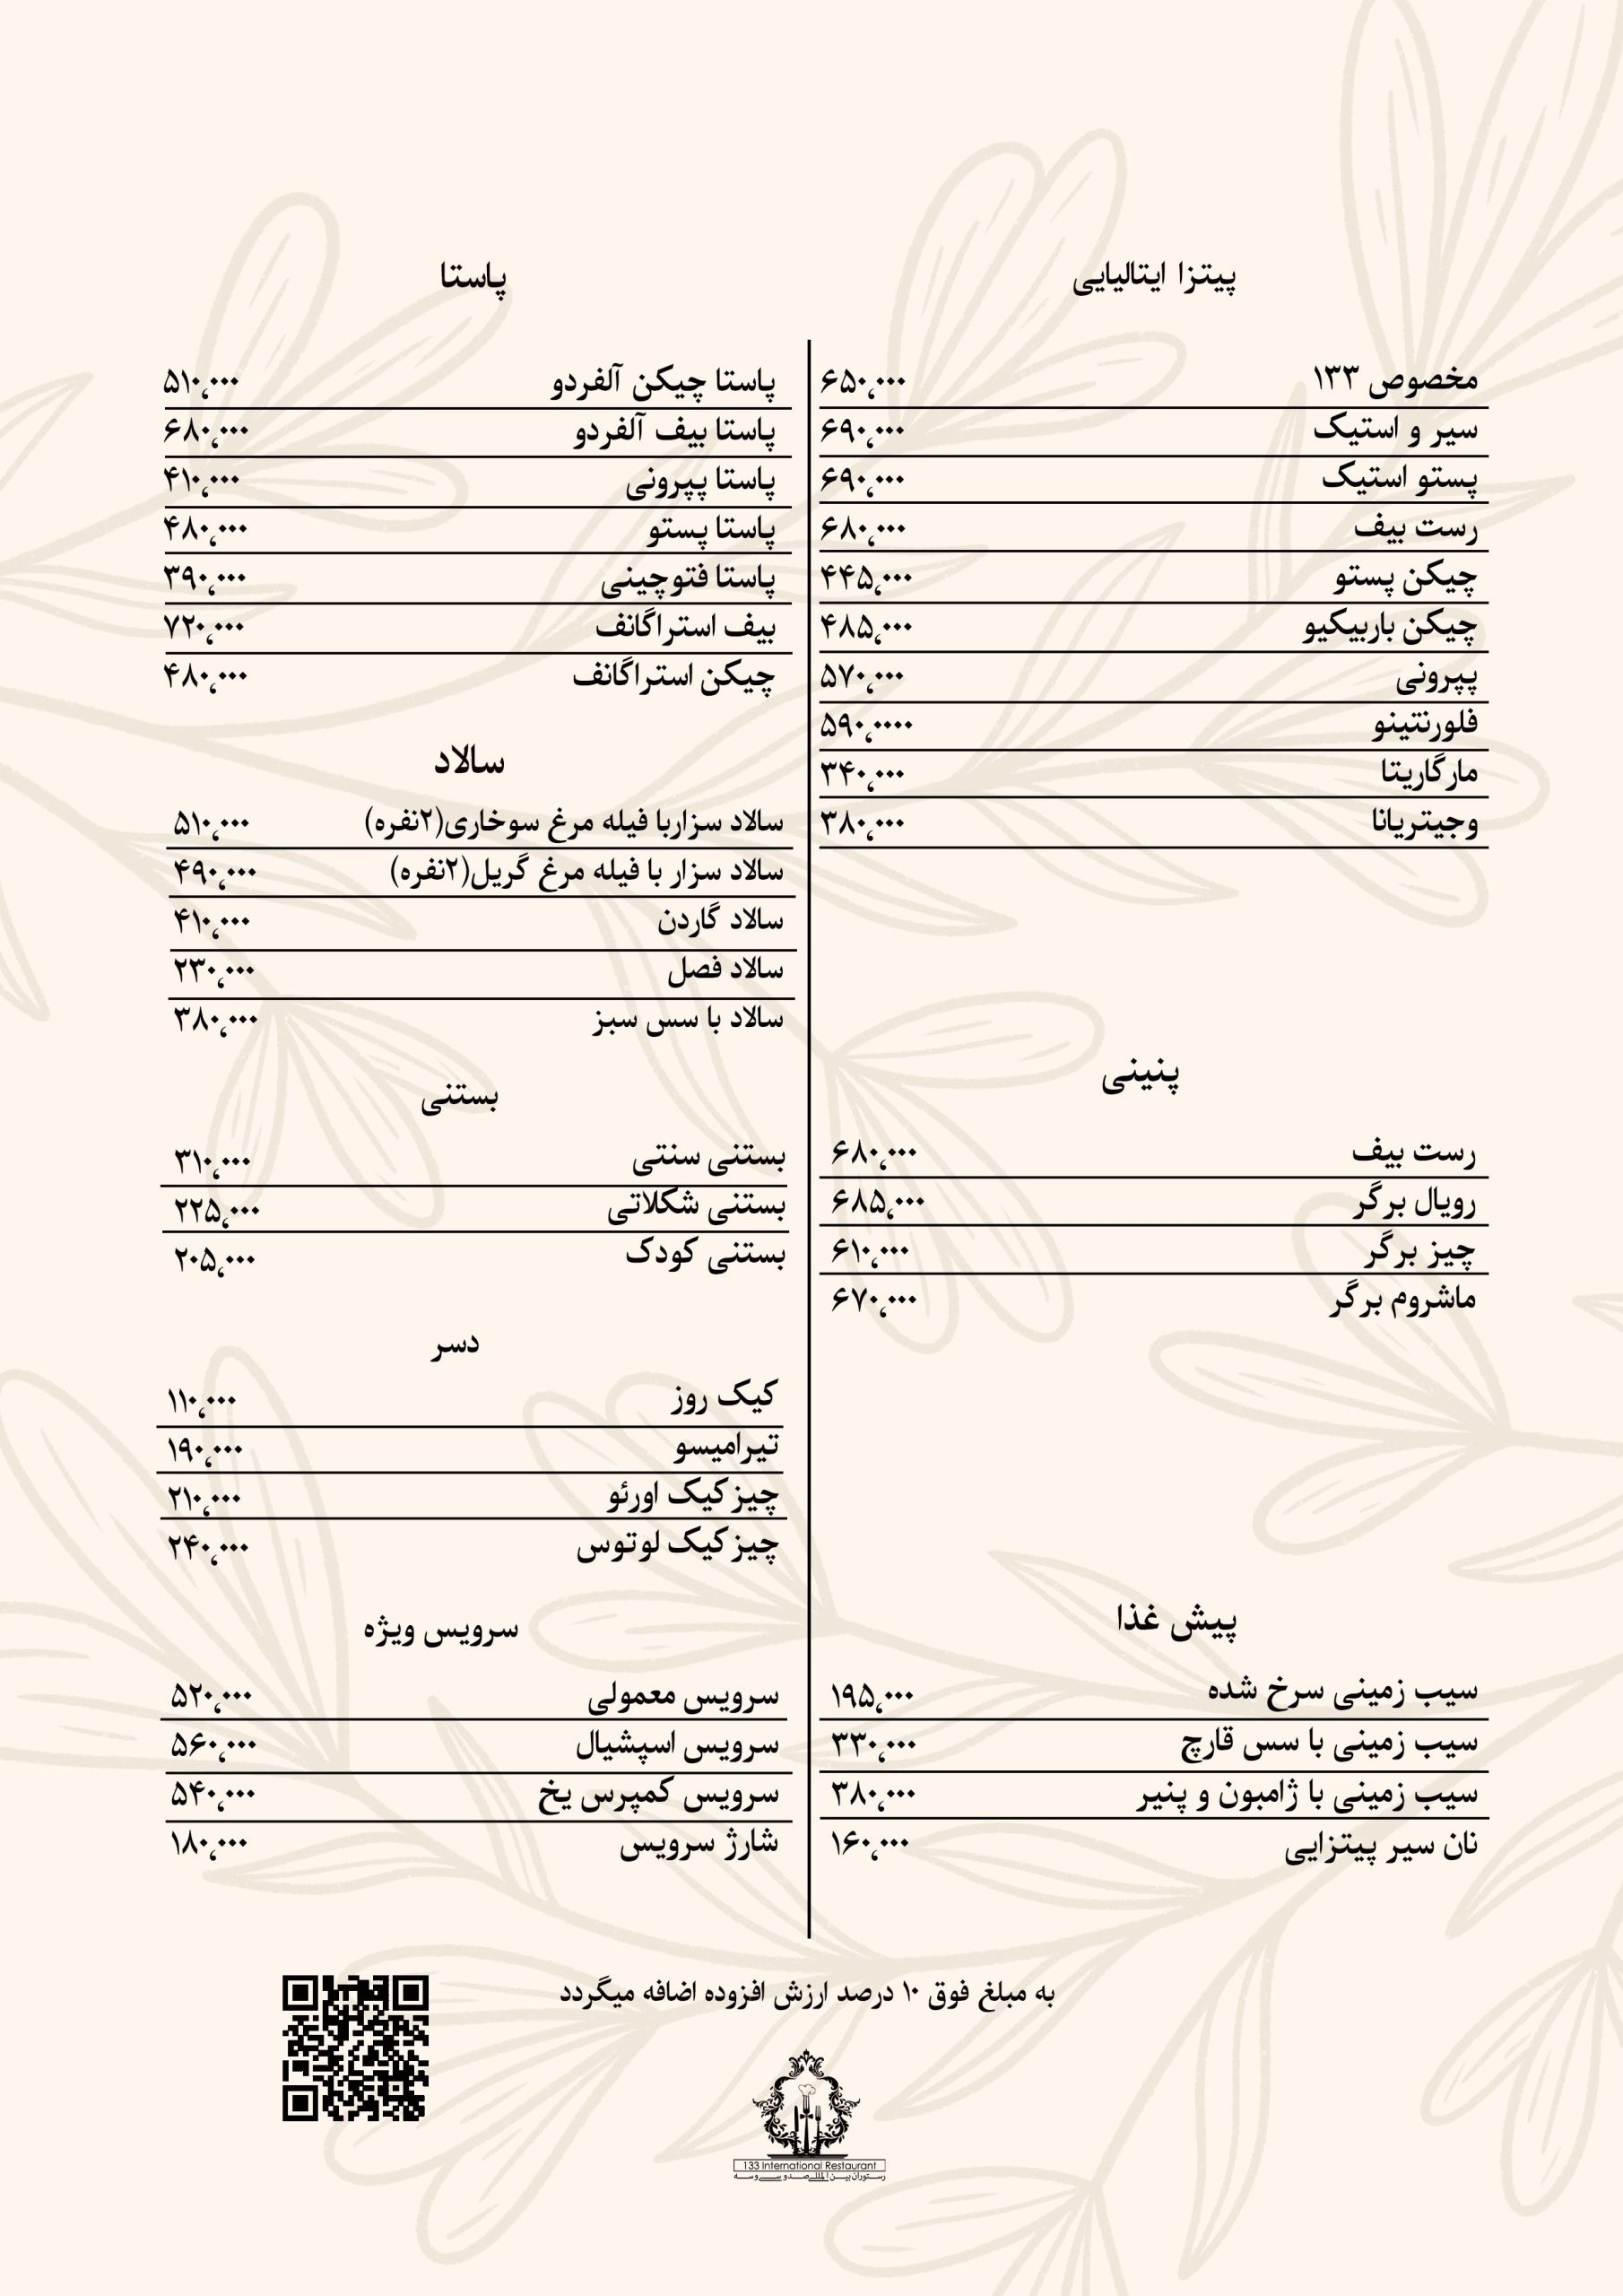 پیتزا ایتالیایی
مخصوص ۱۳۳ ۶۵۰،۰۰۰
سیر و استیک ۶۹۰،۰۰۰
پستو استیک ۶۹۰،۰۰۰
رست بیف ۶۸۰،۰۰۰
چیکن پستو ۴۴۵،۰۰۰
چیکن باربیکیو ۴۸۵،۰۰۰
پپرونی ۵۷۰،۰۰۰
فلورنتینو ۵۹۰،۰۰۰۰
مارگاریتا ۳۴۰،۰۰۰
وجیتریانا ۳۸۰،۰۰۰
پنینی
رست بیف ۶۸۰،۰۰۰
رویال برگر ۶۸۵،۰۰۰
چیز برگر ۶۱۰،۰۰۰
ماشروم برگر ۶۷۰،۰۰۰
پیش غذا
سیب زمینی سرخ شده ۱۹۵،۰۰۰
سیب زمینی با سس قارچ ۳۳۰،۰۰۰
سیب زمینی با ژامبون و پنیر ۳۸۰،۰۰۰
نان سیر پیتزایی ۱۶۰،۰۰۰
پاستا
پاستا چیکن آلفردو ۵۱۰،۰۰۰
پاستا بیف آلفردو ۶۸۰،۰۰۰
پاستا پپرونی ۴۱۰،۰۰۰
پاستا پستو ۴۸۰،۰۰۰
پاستا فتوچینی ۳۹۰،۰۰۰
بیف استراگانف ۷۲۰،۰۰۰
چیکن استراگانف ۴۸۰،۰۰۰
سالاد
سالاد سزاربا فیله مرغ سوخاری(۲نفره) ۵۱۰،۰۰۰
سالاد سزار با فیله مرغ گریل(۲نفره) ۴۹۰،۰۰۰
سالاد گاردن ۴۱۰،۰۰۰
سالاد فصل ۲۳۰،۰۰۰
سالاد با سس سبز ۳۸۰،۰۰۰
بستنی
بستنی سنتی ۳۱۰،۰۰۰
بستنی شکلاتی ۲۲۵،۰۰۰
بستنی کودک ۲۰۵،۰۰۰
دسر
کیک روز ۱۱۰،۰۰۰
تیرامیسو ۱۹۰،۰۰۰
چیزکیک اورئو ۲۱۰،۰۰۰
چیزکیک لوتوس ۲۴۰،۰۰۰
سرویس ویژه
سرویس معمولی ۵۲۰،۰۰۰
سرویس اسپشیال ۵۶۰،۰۰۰
سرویس کمپرس یخ ۵۴۰،۰۰۰
شارژ سرویس ۱۸۰،۰۰۰
به مبلغ فوق ۱۰ درصد ارزش افزوده اضافه میگردد
133 International Restaurant
رستوران بین المللی صد و سی و سه